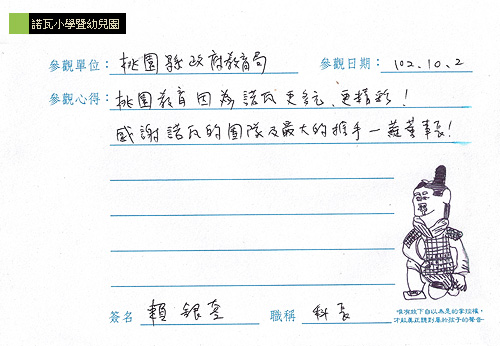 諾瓦小學暨幼兒園
參觀單位：桃園縣政府教育局 參觀日期：102.10.2
參觀心得：桃園教育因為諾瓦更多元、更精彩！
感謝諾瓦的團隊及最大的推手－蘇董事長！
簽名 賴銀奎 職稱 科長
唯有放下自以為是的掌控權，
才能真正聽到屬於孩子的聲音